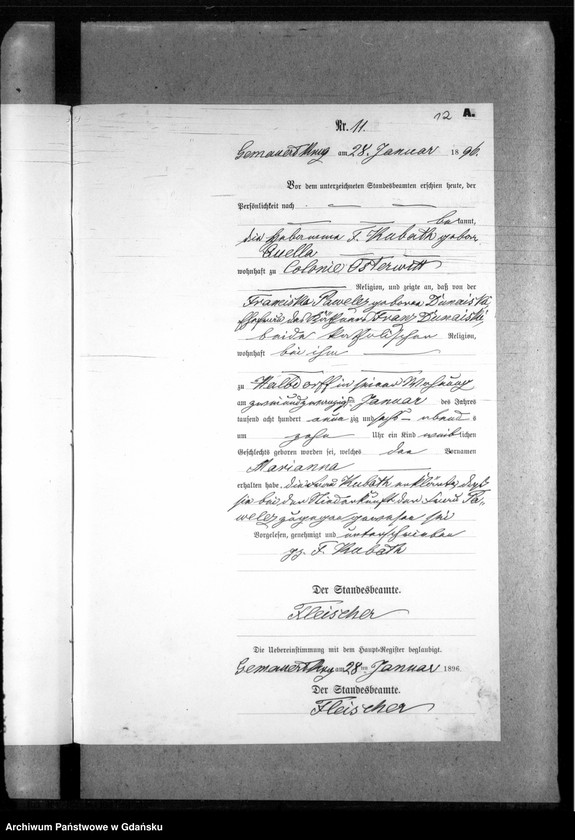 12 A.
Nr. 11.
Gemauert Krug am 28. Januar 1896.
Vor dem unterzeichneten Standesbeamten erschien heute, der
Persönlichkeit nach
bekannt,
die Hebeamme F. Kubath geboren
Quella
wohnhaft zu Colonie Osterwitt
Religion, und zeigte an, daß von der
Franciska Pawelez geborene Dunaiska,
Ehefrau des Franz Dunaiski
beide katholischer Religion,
wohnhaft bei ihm
zu Kalbdorff in seiner Wohnung
am zweiundzwanzigsten Januar des Jahres
tausend acht hundert neunzig und sechs abends
um zehn Uhr ein Kind weiblichen
Geschlechts geboren worden sei, welches den Vornamen
Marianna
erhalten habe. die Kubath erklärte, daß
sie bei der Niederkunft der Frau Pa-
welez zugegen gewesen sei
Vorgelesen, genehmigt und unterschrieben
gz. F. Kubath
Der Standesbeamte.
Fleischer
Die Uebereinstimmung mit dem Haupt-Register beglaubigt.
Gemauert Krug am 28ten Januar 1896.
Der Standesbeamte.
Fleischer
Archiwum Państwowe w Gdańsku